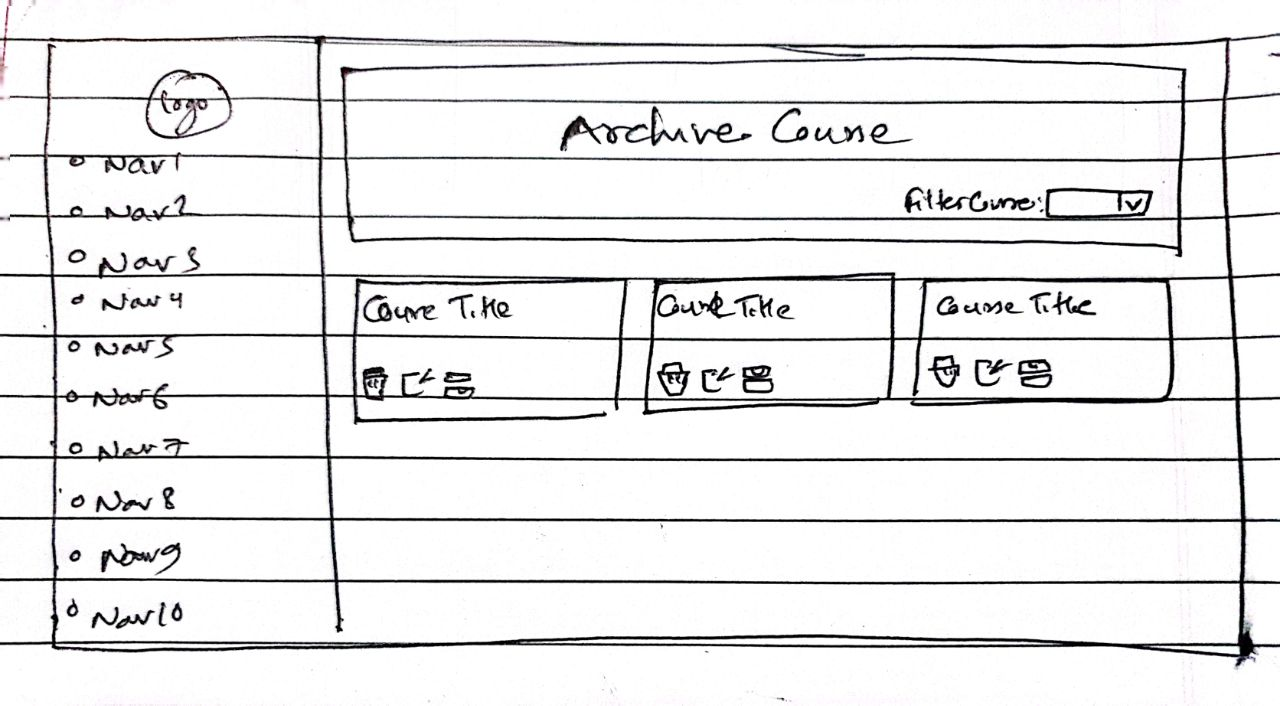 Logo
Nav1
Nav2
Nav3
Nav4
Nav5
Nav6
Nav7
Nav8
Nav9
Nav10
Archive Course
Filter Course:
Course Title
Course Title
Course Title